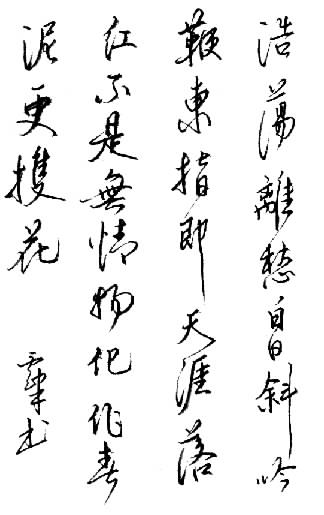 浩蕩離愁白日斜吟
鞭東指即天涯落
紅不是無情物化作春
泥更護花
书